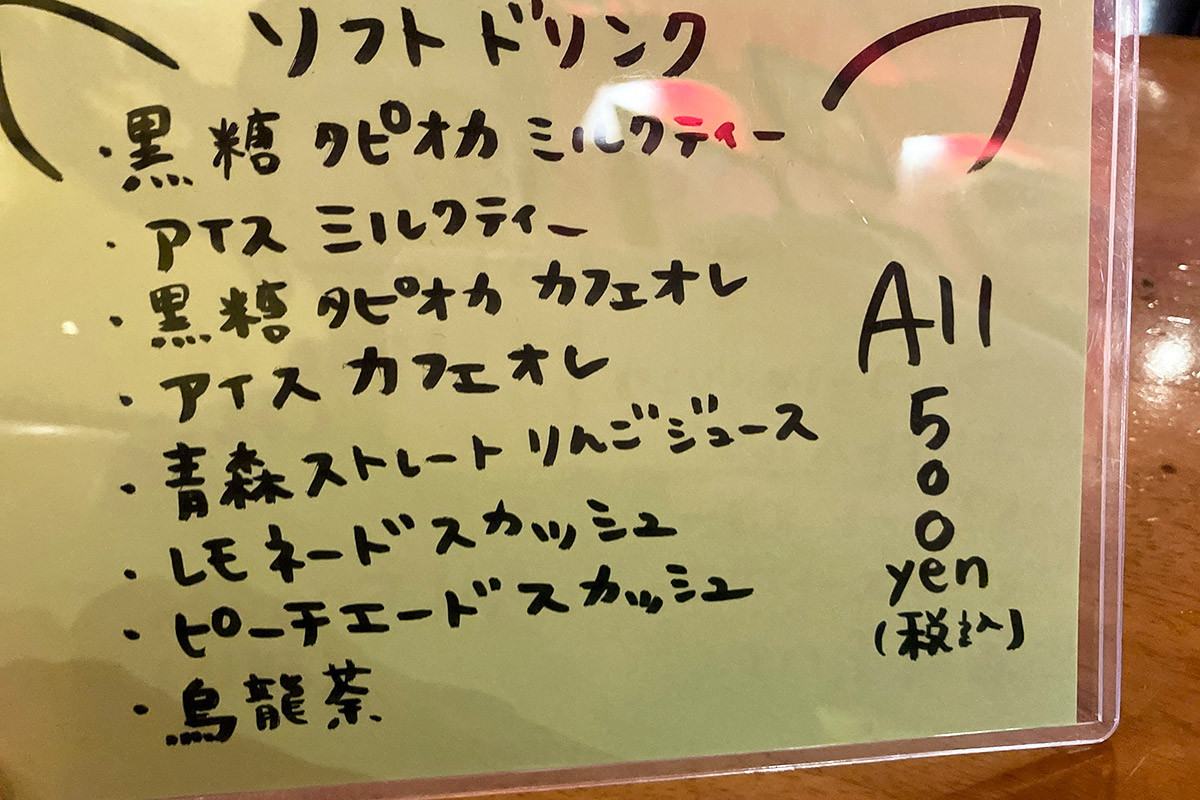 ソフトドリンク
・黒糖 タピオカ ミルクティー
・アイス ミルクティー
・黒糖 タピオカ カフェオレ
・アイス カフェオレ
・青森ストレートりんごジュース
・レモネードスカッシュ
・ピーチエードスカッシュ
・烏龍茶
All
5
0
0
yen
(税込)